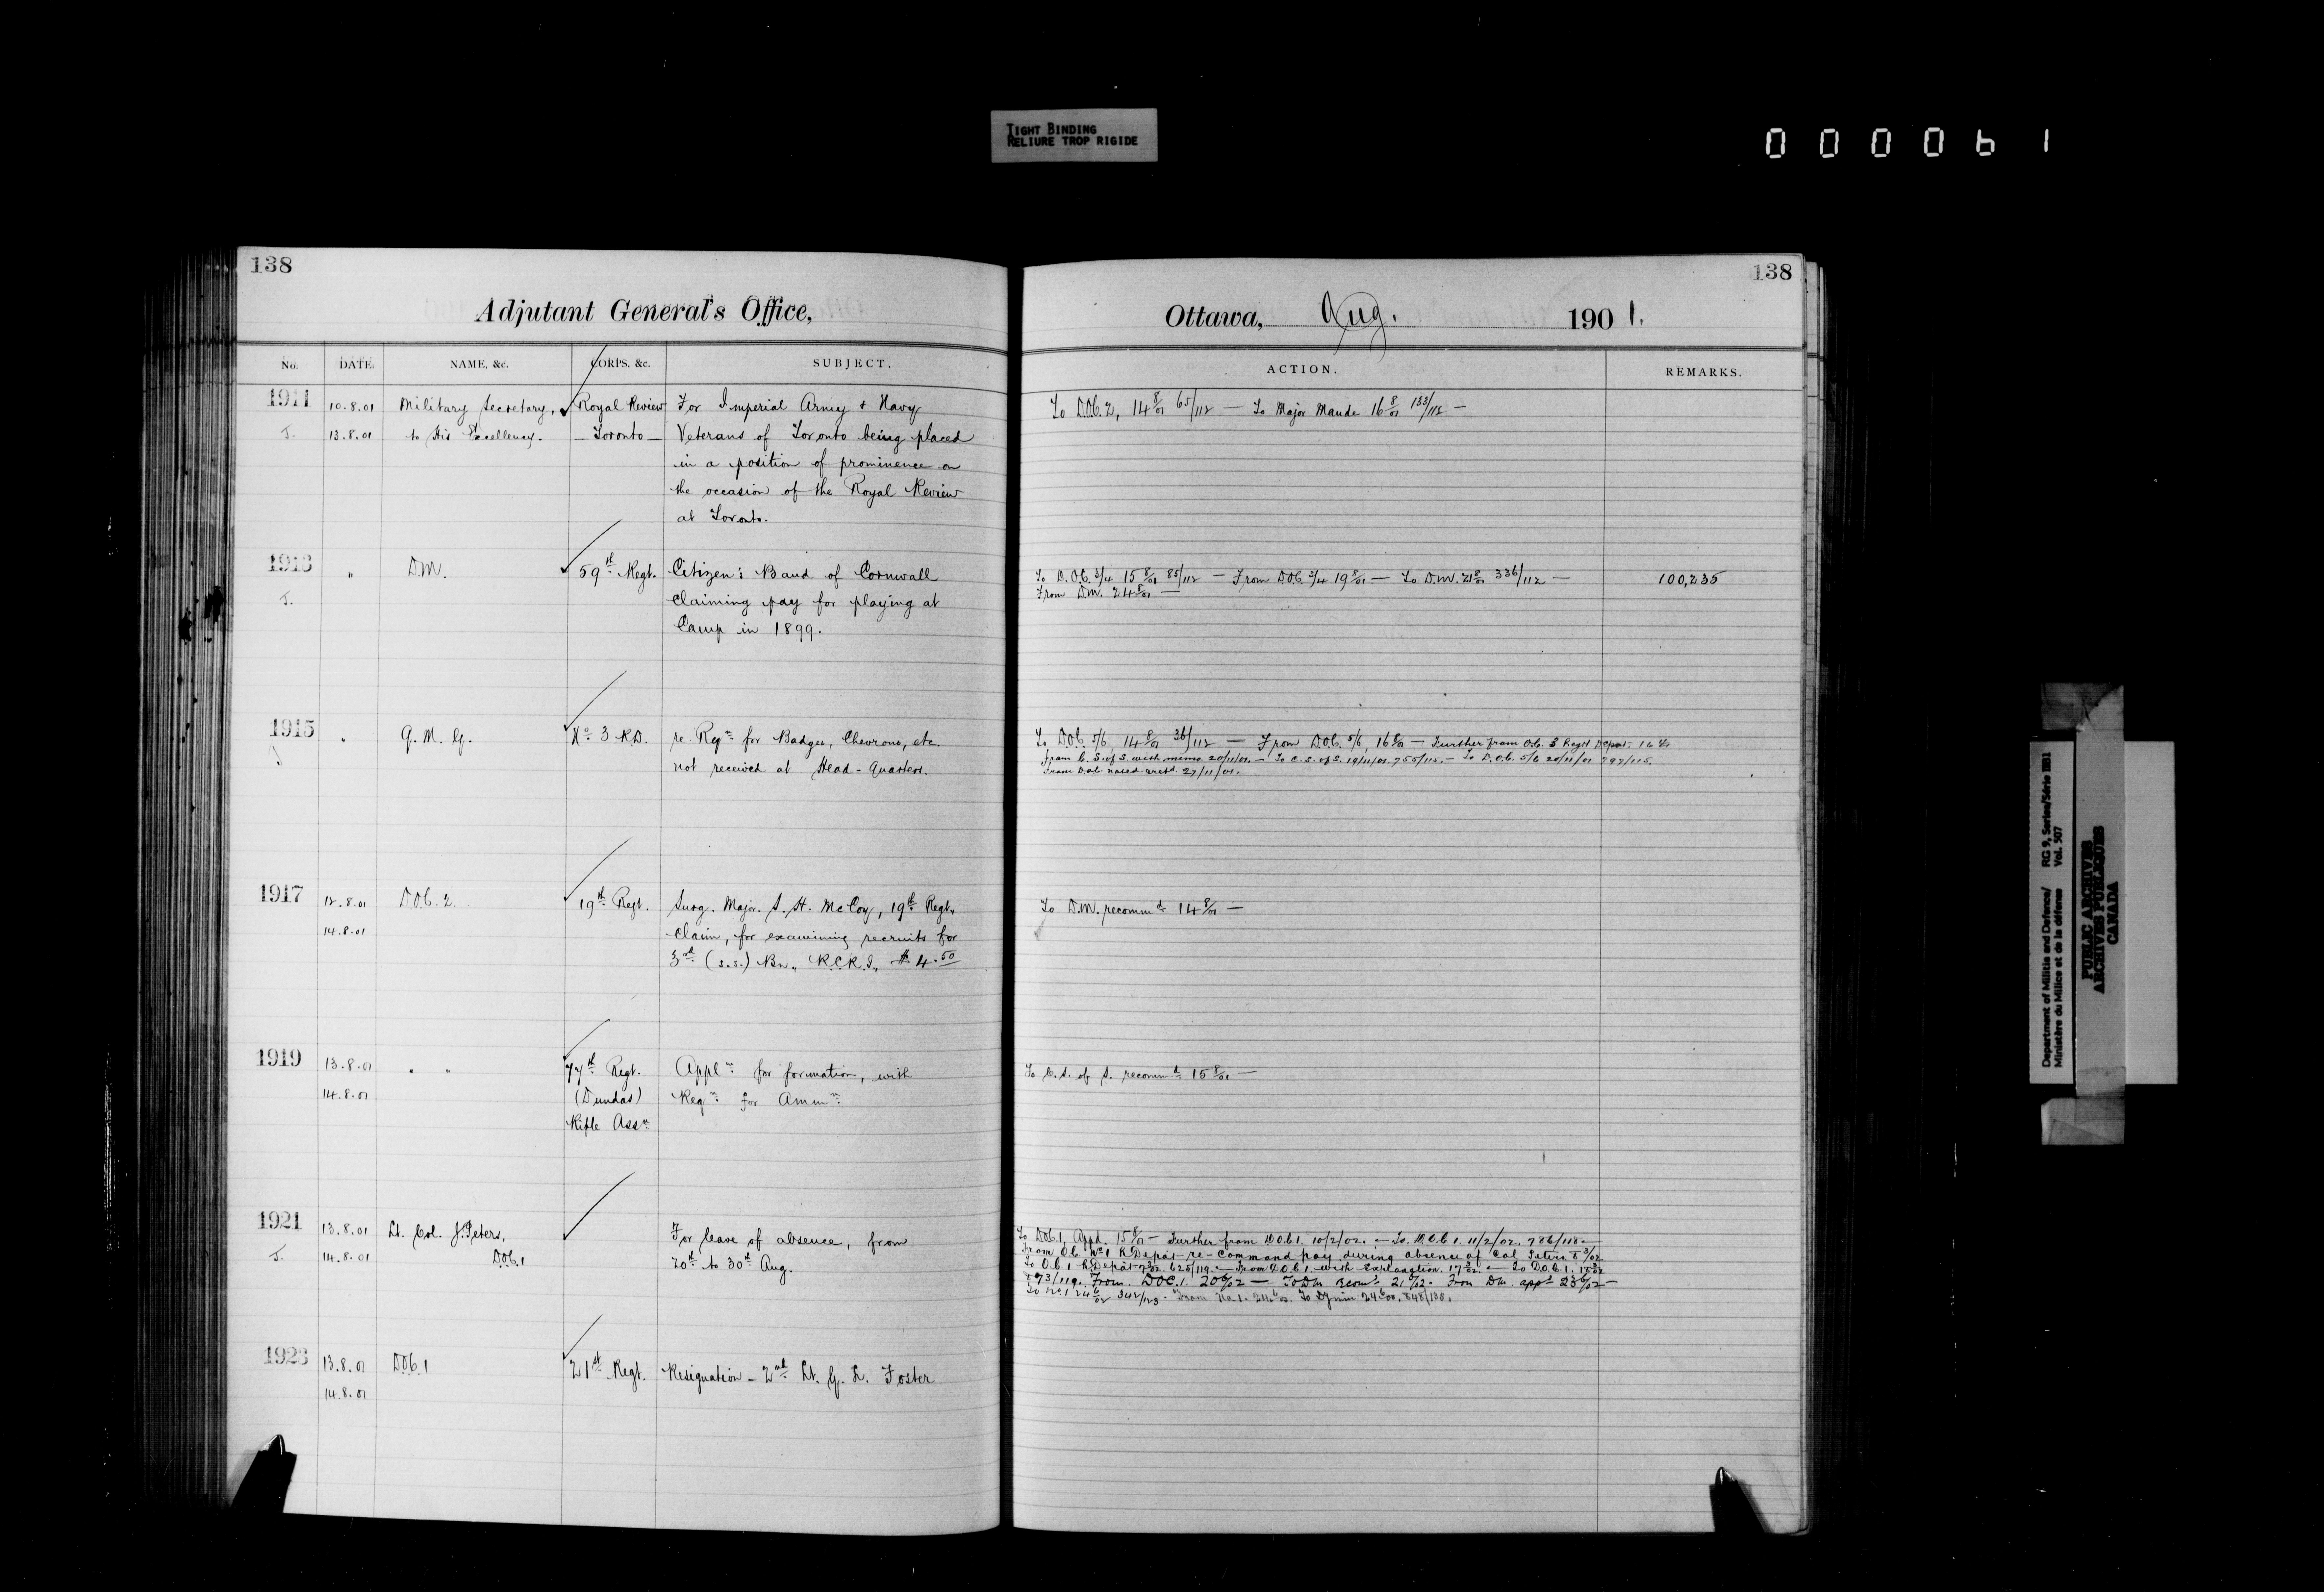 TIGHT BINDING
RELIURE TROP RIGIDE
000061
138
Adjutant General's Office,
No. DATE. NAME, &c. CORPS, &c. SUBJECT.
1911 10.8.01 Military Secretary, Royal Review For Imperial Army & Navy
J. 13.8.01 to His Excellency. — Toronto — Veterans of Toronto being placed
in a position of prominence on
the occasion of the Royal Review
at Toronto.
1913 " D.M. 59th Regt. Citizen's Band of Cornwall
J. claiming pay for playing at
Camp in 1899.
1915 " Q. M. G. No 3 R.D. re Reqn for Badges, Chevrons, etc.
not received at Head-Quarters.
1917 12.8.01 D.O.C. 2. 19th Regt. Surg. Major. S. H. McCoy, 19th Regt.
14.8.01 Claim, for examining recruits for
3rd (s.s.) Bn., R.C.R.I., $4.50
1919 13.8.01 " " 77th Regt. Appln for formation, with
14.8.01 (Dundas) Reqn for Ammn
Rifle Assn
1921 13.8.01 Lt. Col. J. Peters, For leave of absence, from
J. 14.8.01 D.O.C.1 20th to 30th Aug.
1923 13.8.01 D.O.C.1 21st Regt. Resignation - 2nd Lt. G. L. Foster
14.8.01
138
Ottawa, Aug. 1901.
ACTION. REMARKS.
To D.O.C. 2, 14 8/01 65/112 — To Major Maude 16 8/01 133/112 —
To D.O.C. 3/4 15 8/01 85/112 — From D.O.C. 3/4 19 8/01 — To D.M. 21 8/01 336/112 — 100,235
From D.M. 24 8/01 —
To D.O.C. 5/6, 14 8/01 36/112 — From D.O.C. 5/6, 16 8/01 — Further from O.C. 3 Regtl Depot.
From C. S. of S. with memo 20/11/01. — To C. S. of S. 19/11/01 755/115. — To D.O.C. 5/6 20/11/01 797/115.
From D.O.C. noted 27/11/01.
To D.M. recommd 14 8/01 —
To C. S. of S. recommd 15 8/01 —
To D.O.C.1, Appd. 15 8/01 — Further from D.O.C.1. 10/2/02. — To D.O.C.1. 11/2/02. 786/118 —
From O.C. No 1 R. Depot — re Command pay during absence of Col Peters 5 3/02
To O.C. 1 R. Depot 7 3/02 625/119. — From D.O.C.1. with Explanation. 17 3/02 — To D.O.C.1.
From D.O.C.1 20 6/02 — To D.M. recomd 21 6/02. From D.M. appd 23 6/02 —
To No. 1 24 6/02 342/123. From No. 1.
Department of Militia and Defence/ RG 9, Series/Série IIB1
Ministère du Milice et de la défense Vol. 507
PUBLIC ARCHIVES
ARCHIVES PUBLIQUES
CANADA